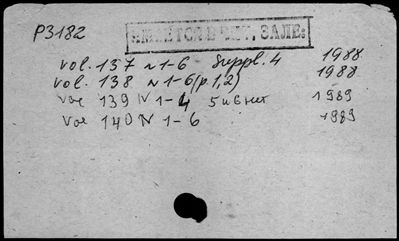 P3182
ИМЕЕТСЯ В ЧИТ. ЗАЛЕ
vol. 137 N 1-6 Suppl. 4 1988
vol. 138 N 1-6 (p. 1,2) 1988
vol 139 N 1-4 5 и 6 нет 1989
vol 140 N 1-6 1989